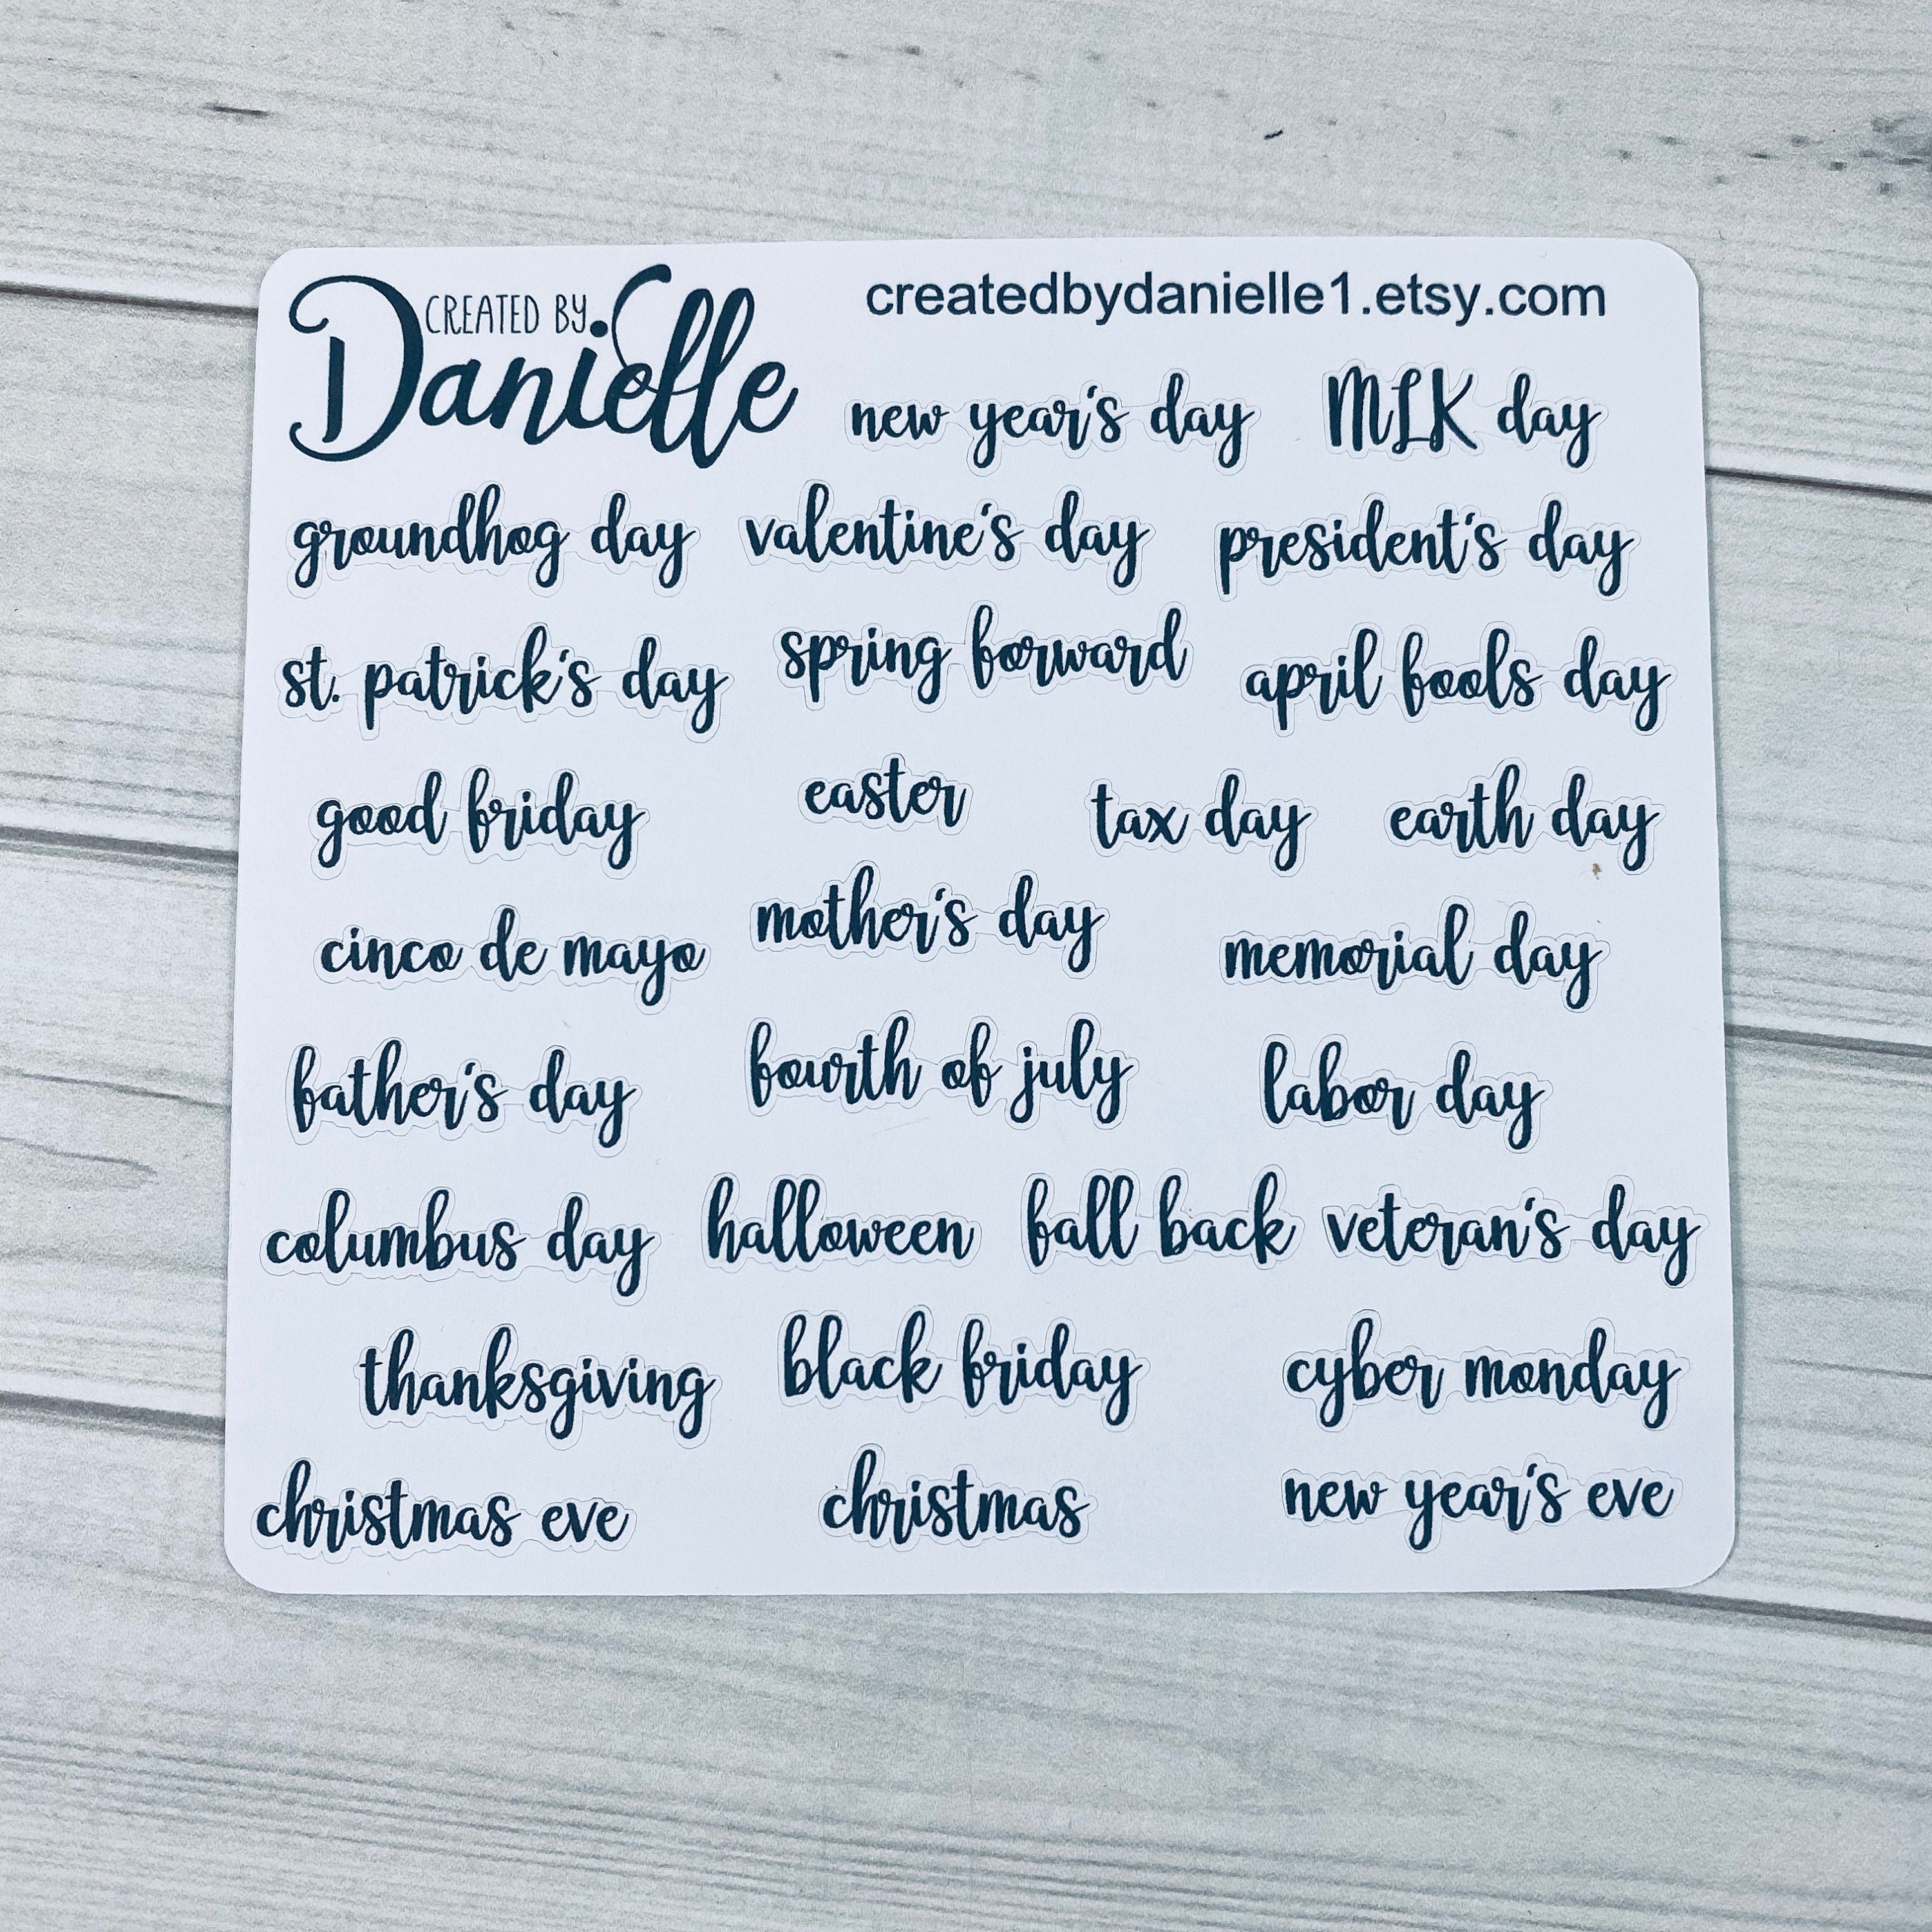 CREATED BY
Danielle
createdbydanielle1.etsy.com
new year's day MLK day
groundhog day valentine's day president's day
st. patrick's day spring forward april fools day
good friday easter tax day earth day
cinco de mayo mother's day memorial day
father's day fourth of july labor day
columbus day halloween fall back veteran's day
thanksgiving black friday cyber monday
christmas eve christmas new year's eve